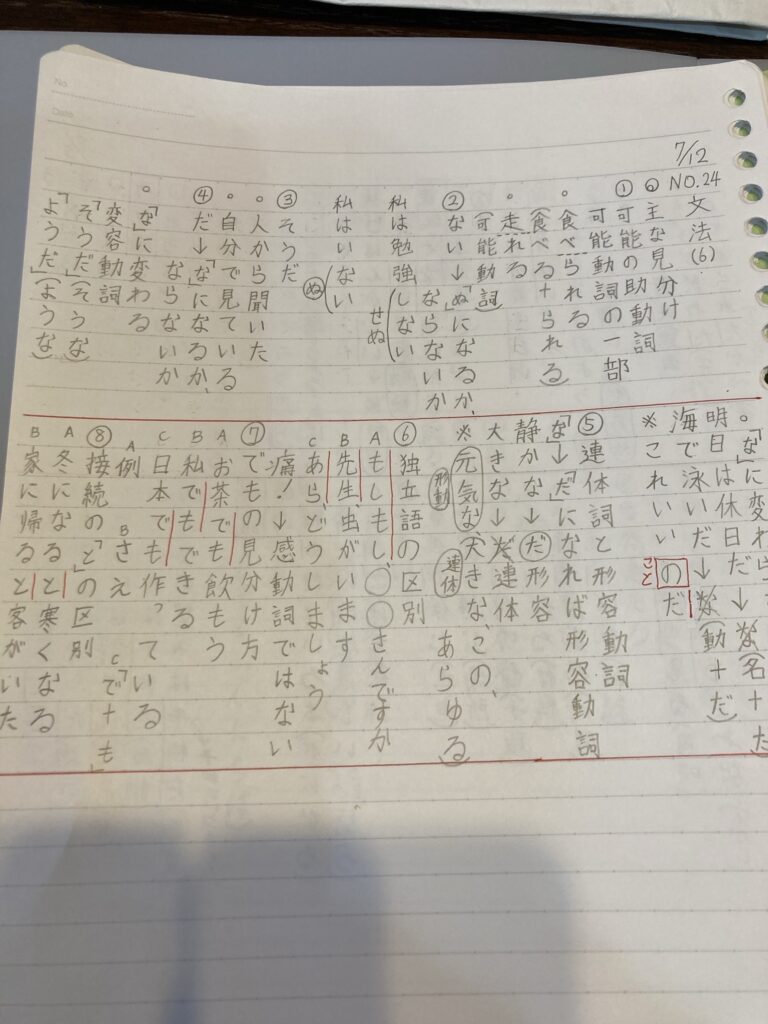 No.
Date
7/12
NO.24 文法(6)
◎主な見分け
①可能の助動詞
可能動詞の一部
。食べられる
(食べる+られる)
。走れる
(可能動詞)
②ない→「ぬ」になるか、
ならないか
私は勉強(しない
せぬ
私はい(ない
ぬ
③そうだ
。人から聞いた
。自分で見ている
④だ→「な」になるか、
ならないか
。「な」に変わる
変容動詞
「そうだ」(そうな)
「ようだ」(ような)
。「な」に変
明日は休日だ→
海で泳いだ→
(動+だ)
※これいいのだ
こと
⑤連体詞と形容動詞
「な→だ」になれば形容動詞
静かな→だ 形容
大きな→だ 連体
※元気な、大きな、この、
あらゆる
形動
連体
⑥独立語の区別
Aもしもし、〇〇さんですか
B先生、虫がいます
Cあら、どうしましょう
痛!→感動詞ではない
⑦でもの見分け方
Aお茶でも飲もう
B私でもできる
C日本でも作っている
例 Aさえ C「で+も」
⑧接続の「と」の区別
A冬になると寒くなる
B家に帰ると客がいた